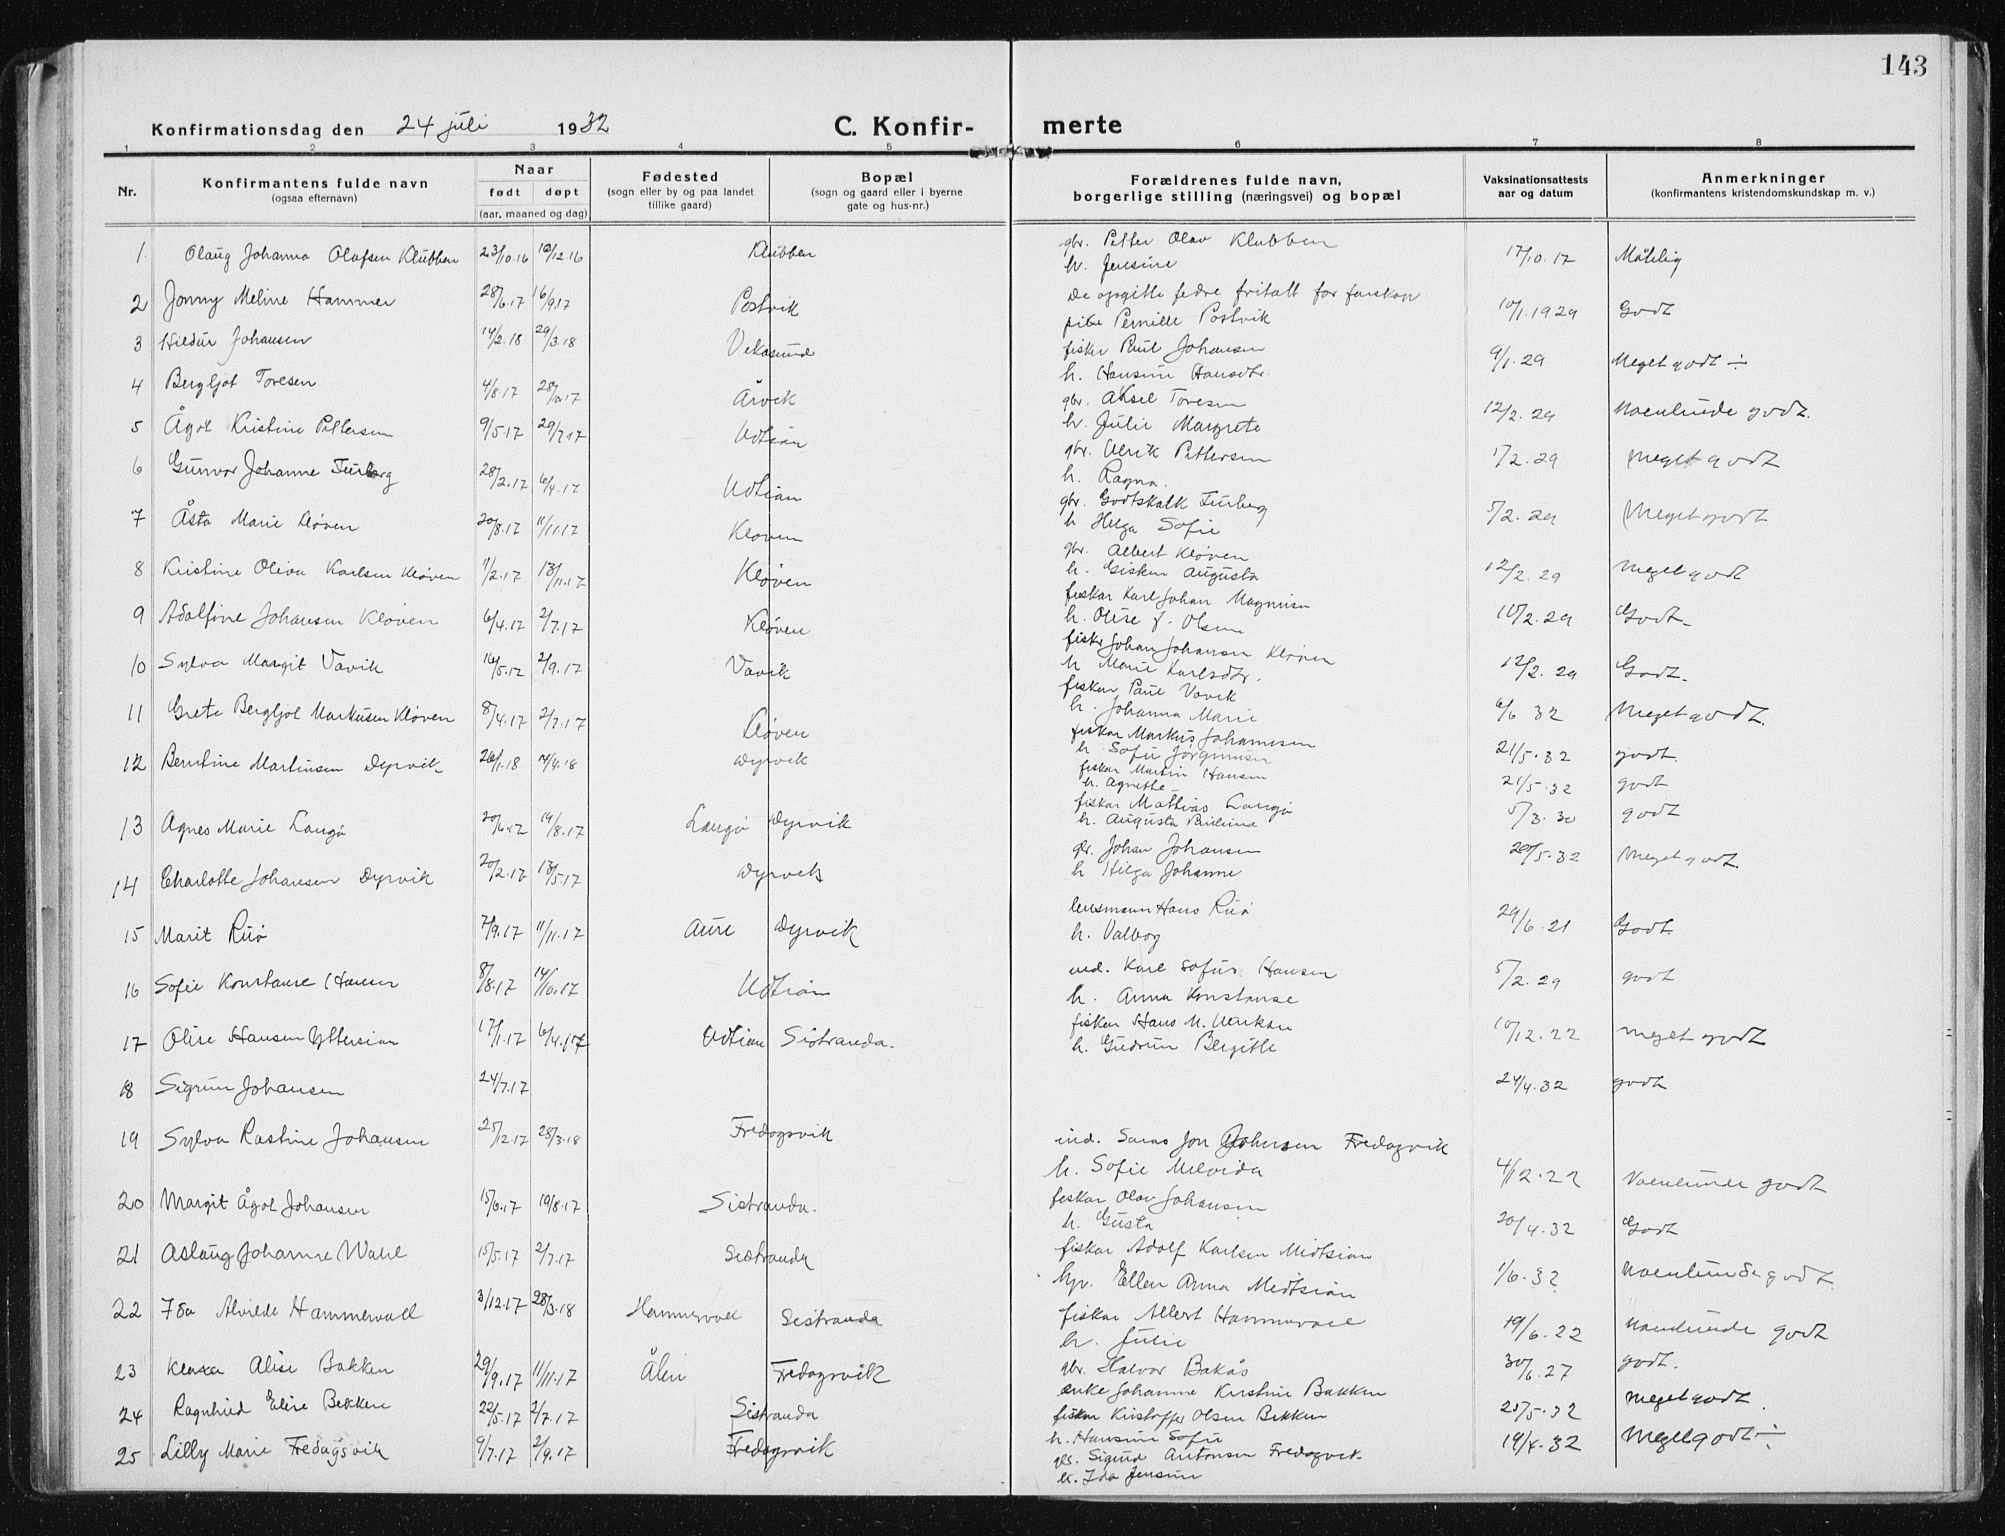 143
Konfirmationsdag den 24 juli 1932 C. Konfir- merte
1 2 3 4 5 6 7 8
Nr. Konfirmantens fulde navn (ogsaa efternavn) Naar født døpt (aar, maaned og dag) Fødested (sogn eller by og paa landet tillike gaard) Bopæl (sogn og gaard eller i byerne gate og hus-nr.) Forældrenes fulde navn, borgerlige stilling (næringsvei) og bopæl Vaksinationsattests aar og datum Anmerkninger (konfirmantens kristendomskundskap m. v.)
1 Olaug Johanna Olafsen Klubben 23/10.16 10/12.16 Klubben gbr. Petter Olav Klubben 17/10.17 Måtelig
h. Jensine
2 Jonny Meline Hammer 28/6.17 16/9.17 Postvik De opgitte fedre fritatt for farskap 10/1.1929 Godt
pike Pernille Postvik
3 Hildur Johansen 14/2.18 29/3.18 fisker Paul Johansen 9/1.29 Meget godt ÷
h. Hansine Hansdtr.
4 Bergljot Toresen 4/8.17 28/10.17 Årvik gbr. Aksel Toresen 12/2.29 Noenlunde godt.
h. Julie Margrete
5 Ågot Kristine Pettersen 9/5.17 29/7.17 Udtian gbr. Ulrik Pettersen 1/2.29 Meget godt
h. Ragna.
6 Gunvor Johanne Furberg 28/2.17 6/4.17 Udtian gbr. Godtskalk Furberg 5/2.29 Meget godt
h Helga Sofie
7 Åsta Marie Kløven 20/8.17 11/11.17 Kløven gbr. Albert Kløven 12/2.29 Meget godt
h. Gisken Augusta
8 Kristine Oliva Karlsen Kløven 1/2.17 13/11.17 Kløven fisker Karl Johan Magnusen 10/2.29 Godt
h. Olise J. Olsen
9 Adolfine Johansen Kløven 6/4.17 2/7.17 Kløven fisker Johan Johansen Kløven 12/2.29 Godt.
h Marie Karlsdtr.
10 Sylva Margit Vavik 16/5.17 2/9.17 Vavik fisker Paul Vavik 6/6 32 Meget godt.
h. Johanna Marie
11 Grete Bergljot Markusen Kløven 8/4.17 2/7.17 Kløven fisker Markus Johannesen 21/5.32 godt.
h. Sofie Jørginusen
12 Berntine Martinsen Dyrvik 26/1.18 Dyrvik fisker Martin Hansen 21/5.32 godt
h. Agnethe
13 Agnes Marie Langø 20/6.17 19/8.17 Langø Dyrvik fisker Mathias Langø 5/3.30 godt
h. Augusta Pauline
14 Charlotte Johansen Dyrvik 20/2.17 13/5.17 Dyrvik gbr. Johan Johansen 20/5.32 Meget godt.
h Helga Johanne
15 Marit Ruø 7/9.17 11/11.17 Aure Dyrvik lensmann Hans Ruø 29/6.21 Godt.
h. Valbog
16 Sofie Konstanse Hansen 8/8.17 14/10.17 Udtian ind. Karl Sofus Hansen 5/2.29 godt
h. Anna Konstanse
17 Olise Hansen Yttersian 17/1.17 6/4.17 Udtian Sistranda. fisker Hans M. Ulriksen 10/12.22 meget godt
h. Gudrun Bergitte
18 Sigrun Johansen 24/7.17 24/4.32 godt
19 Sylva Rastine Johansen 25/12.17 28/3.18 Fredagsvik ind. Johnsen Fredagvik 4/12.22 Noenlunde godt
h. Sofie Melvida
20 Margit Ågot Johansen 15/6.17 19/8.17 Sistranda. fisker Olav Johansen 20/4.32 Godt
h. Gusta
21 Aslaug Johanne Wahl 15/5.17 2/7.17 Sistranda fisker Adolf Karlsen Midtsian 1/6.32 Noenlunde godt.
hgv. Ellen Anna Midtsian
22 Ida Alvilde Hammervoll 3/12.17 28/3.18 Hammervoll Sistranda fisker Albert Hammervoll 19/6.22 Noenlunde godt
h. Julie
23 Klara Alise Bakken 29/9.17 11/11.17 Ålen Fredagsvik gbr. Halvor Bakås 30/6.27 godt.
enke Johanne Kristine Bakken
24 Ragnhild Elise Bekken 22/5.17 2/7.17 Sistranda fisker Kristoffer Olsen Bekken 25/5.32 Meget godt.
h. Hansine Sofie
25 Lilly Marie Fredagsvik 9/7.17 2/9.17 Fredagsvik gbr. Sigurd Antonsen Fredagvik 19/4.32 Meget godt ÷
h. Ida Jensine